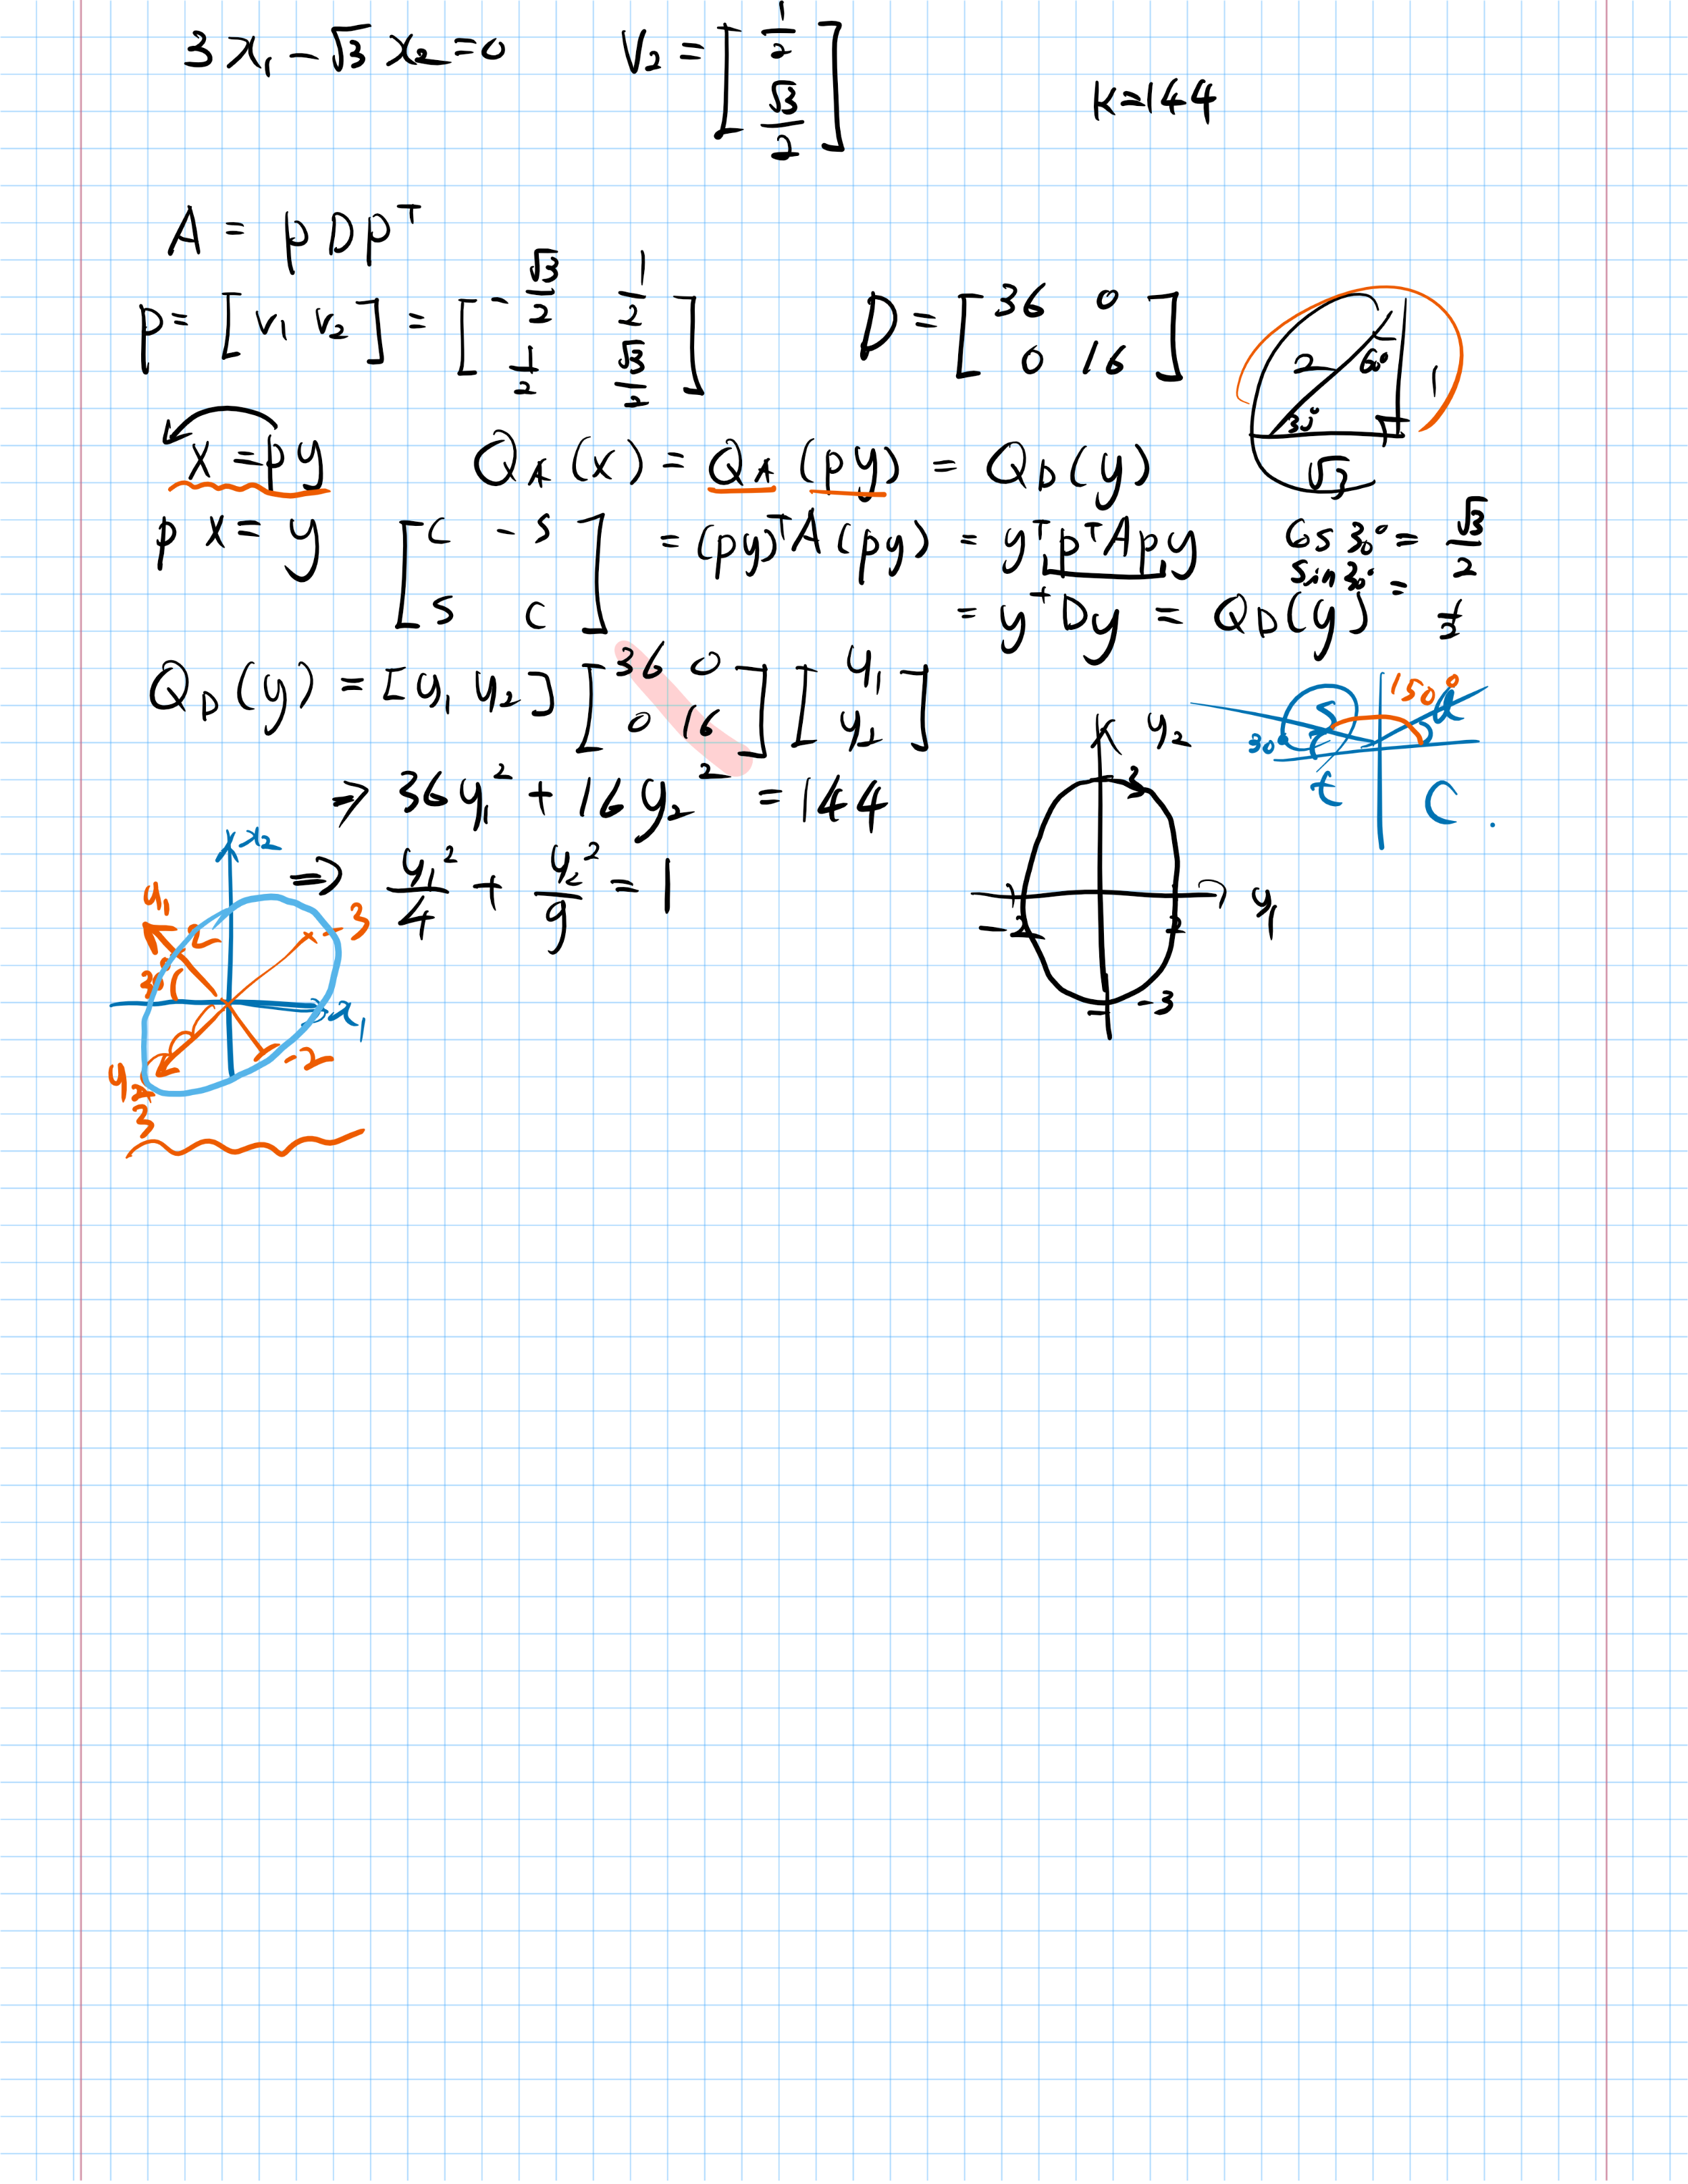 3x₁ - √3 x₂ = 0    V₂ = [ 1/2 ; √3/2 ]
K=144
A = P D Pᵀ
P = [ v₁ v₂ ] = [ -√3/2  1/2 ; 1/2  √3/2 ]    D = [ 36 0 ; 0 16 ]
2 60° 1 30° √3
x = Py    Q_A(x) = Q_A(Py) = Q_D(y)
P x = y    [ c -s ; s c ]    = (Py)ᵀA(Py) = yᵀPᵀAPy    Cos 30° = √3/2
sin 30° = 1/2
= yᵀDy = Q_D(y)
Q_D(y) = [y₁ y₂] [ 36 0 ; 0 16 ] [ y₁ ; y₂ ]
150°
S
30°
t C
⇒ 36y₁² + 16y₂² = 144
⇒ y₁²/4 + y₂²/9 = 1
y₂ 3 -2 2 y₁ -3
x₂
y₁ 2 3
30°
x₁
-2
y₂
3